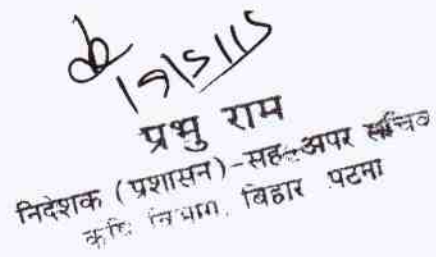 19/5/15
प्रभु राम
निदेशक (प्रशासन)-सह-अपर सचिव
कृषि विभाग, बिहार पटना